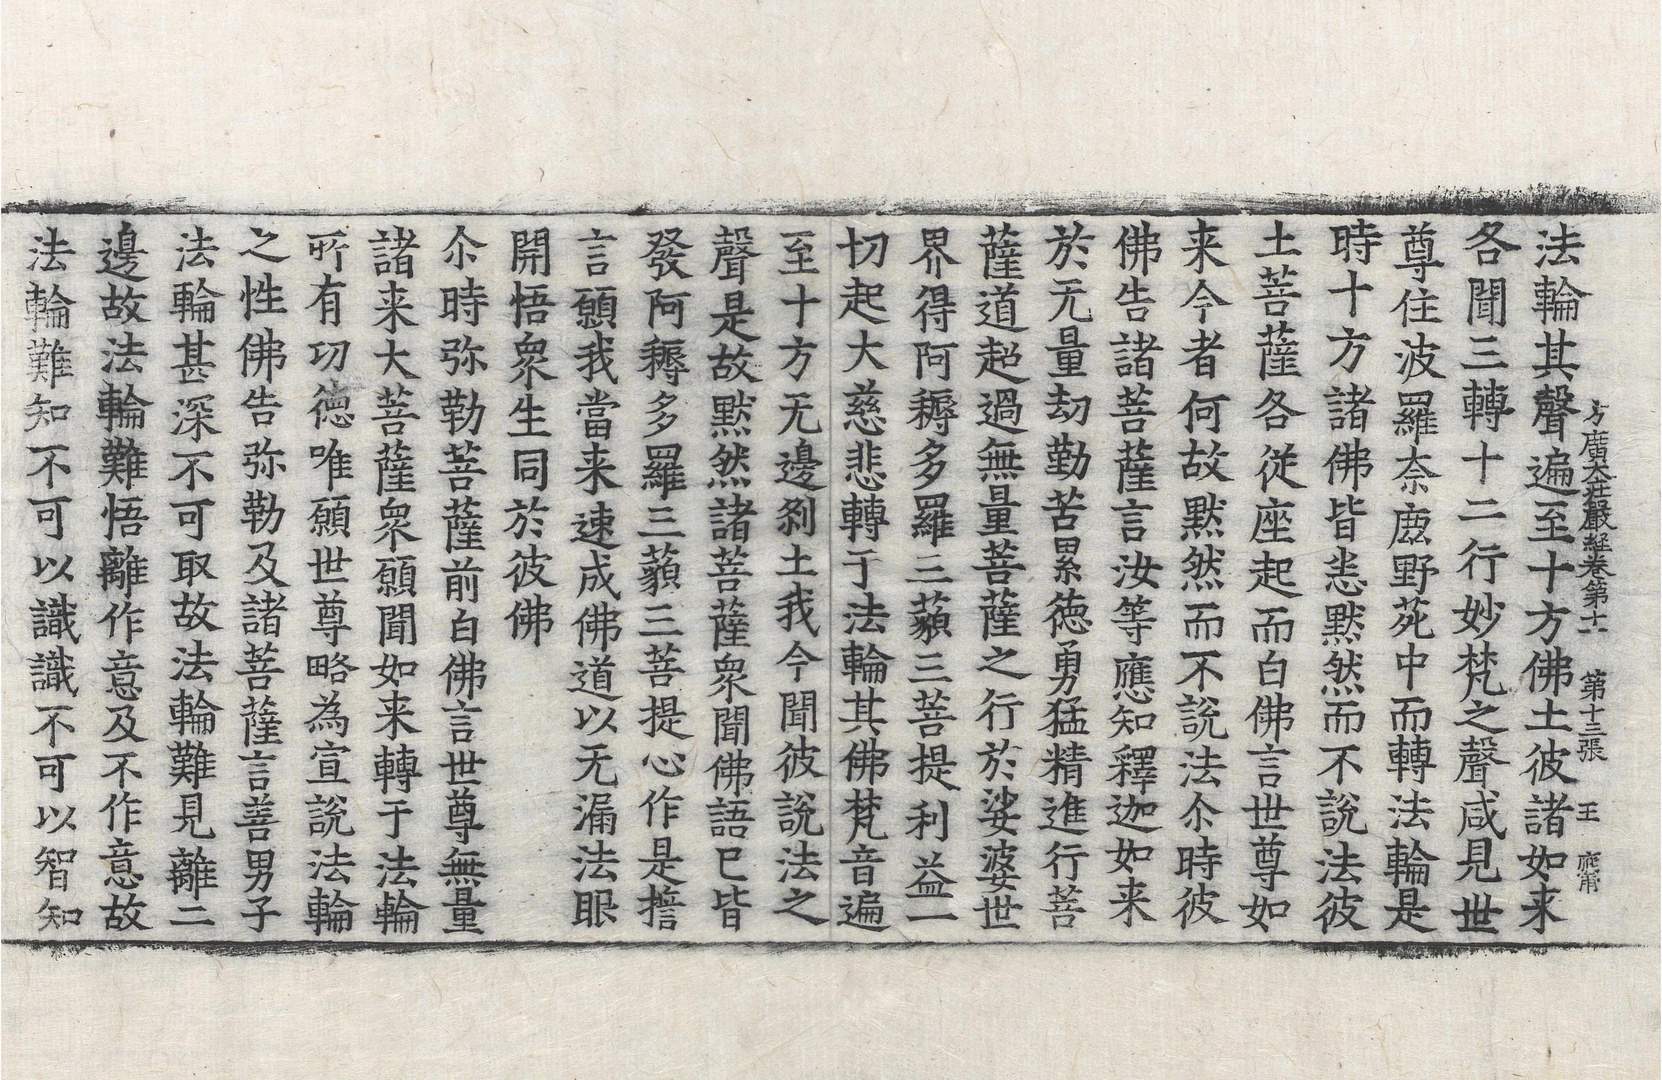 方廣大莊嚴經卷第十一　第十三張　王　應甫
法輪其聲遍至十方佛土彼諸如来
各聞三轉十二行妙梵之聲咸見世
尊住波羅奈鹿野苑中而轉法輪是
時十方諸佛皆悉默然而不說法彼
土菩薩各從座起而白佛言世尊如
来今者何故默然而不說法尒時彼
佛告諸菩薩言汝等應知釋迦如来
於无量劫勤苦累德勇猛精進行菩
薩道超過無量菩薩之行於娑婆世
界得阿耨多羅三藐三菩提利益一
切起大慈悲轉于法輪其佛梵音遍
至十方无邊剎土我今聞彼說法之
聲是故默然諸菩薩衆聞佛語已皆
發阿耨多羅三藐三菩提心作是擔
言願我當来速成佛道以无漏法眼
開悟衆生同於彼佛
尒時弥勒菩薩前白佛言世尊無量
諸来大菩薩衆願聞如来轉于法輪
所有功德唯願世尊略為宣說法輪
之性佛告弥勒及諸菩薩言善男子
法輪甚深不可取故法輪難見離二
邊故法輪難悟離作意及不作意故
法輪難知不可以識識不可以智知